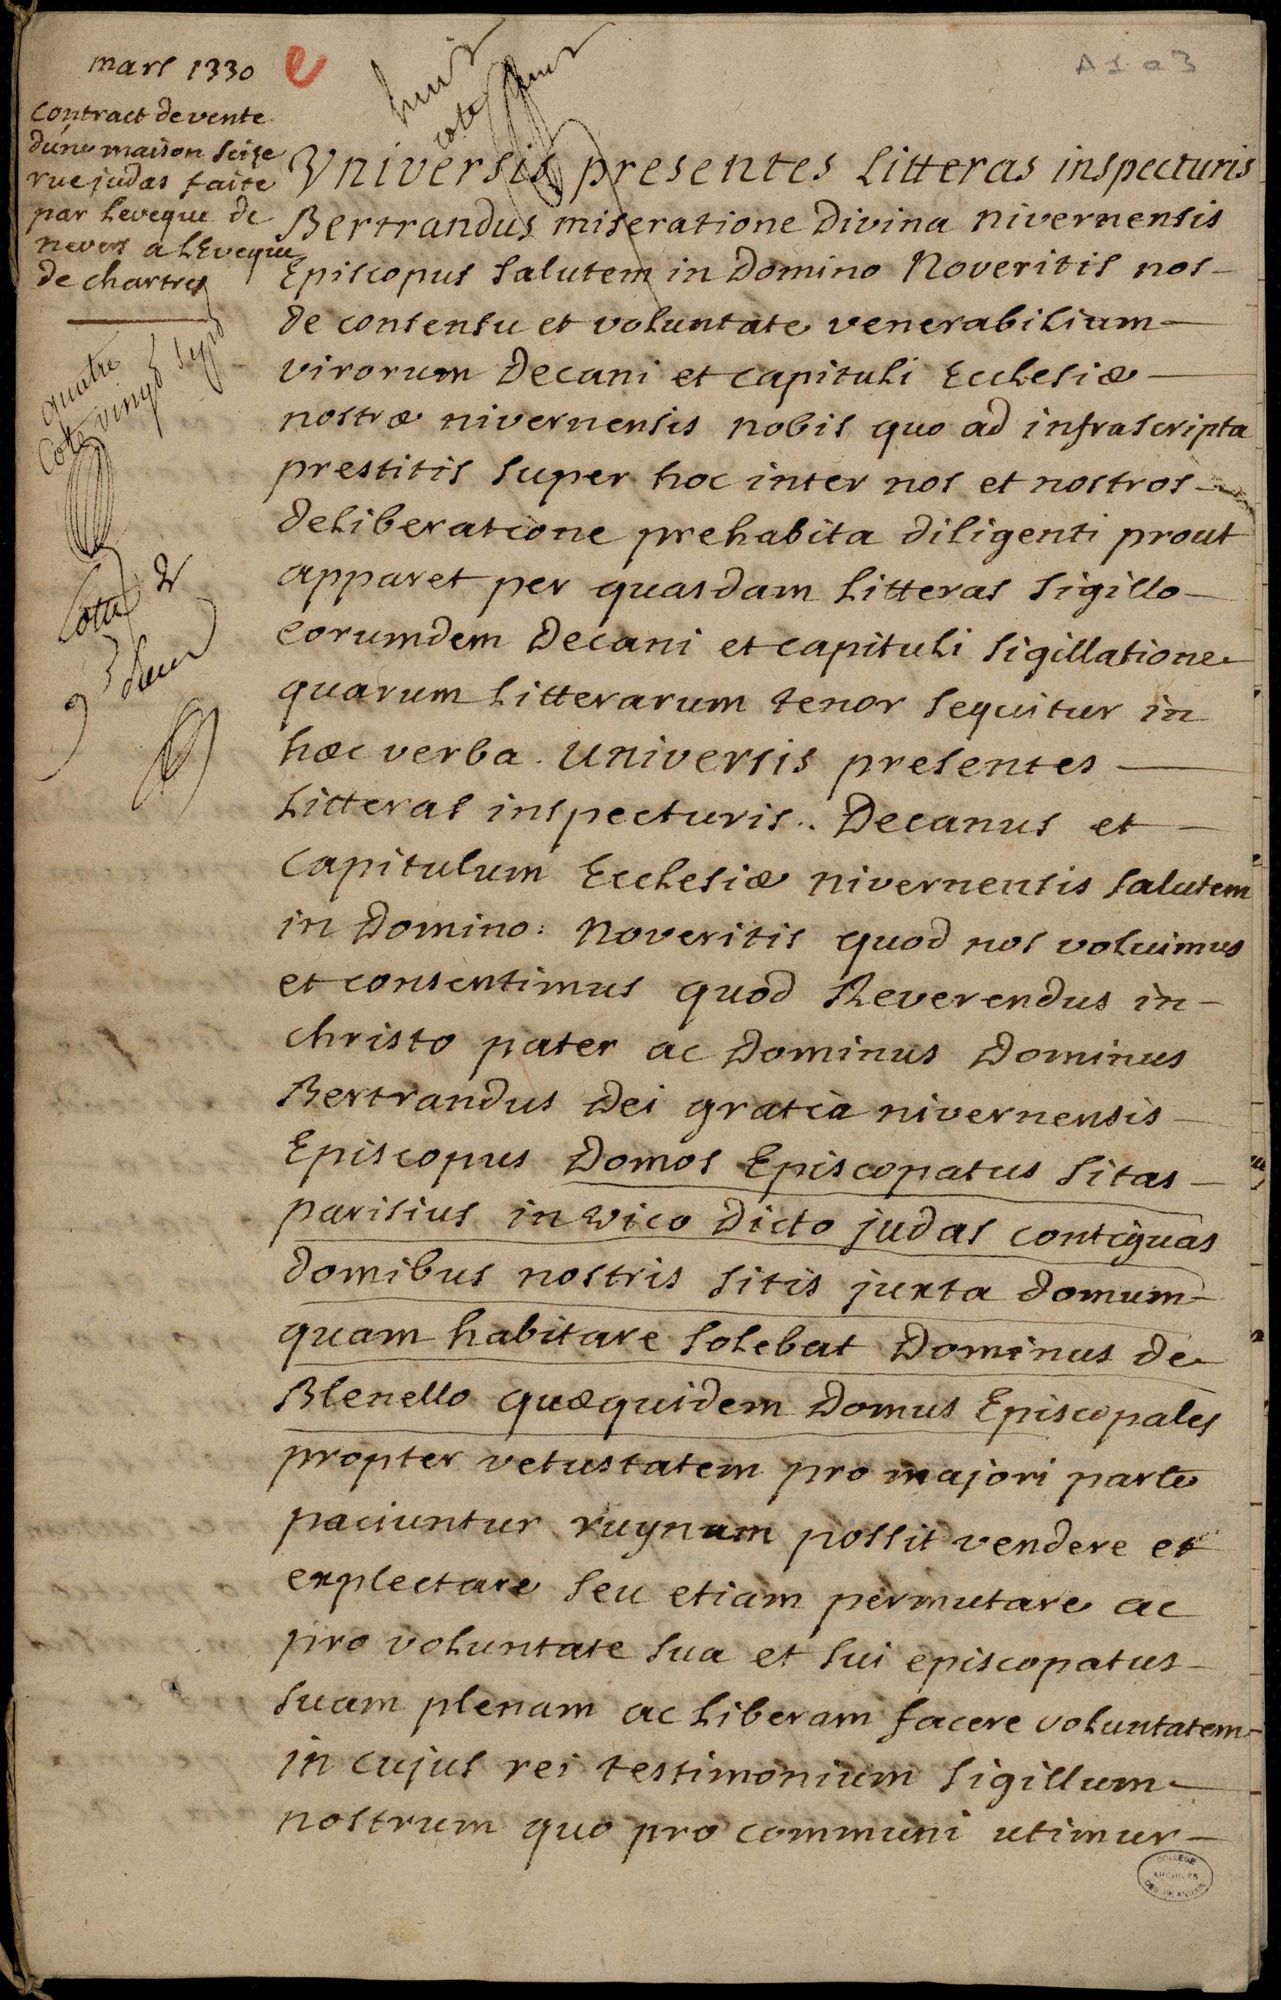 mars 1330
e
A 1 a 3
contract de vente
d'une maison scize
rue judas faite
par Leveque de
nevers a LEveque
de chartres
Vniversis presentes Litteras inspecturis
Bertrandus miseratione Divina nivernensis
Episcopus Salutem in Domino Noveritis nos
de consensu et voluntate venerabilium
virorum Decani et capituli Ecclesiæ
nostræ nivernensis nobis quo ad infrascripta
prestitis super hoc inter nos et nostros
deliberatione prehabita diligenti prout
apparet per quasdam Litteras sigillo
eorumdem Decani et capituli sigillatione
quarum Litterarum tenor sequitur in
hæc verba. universis presentes
Litteras inspecturis.. Decanus et
Capitulum Ecclesiæ nivernensis salutem
in Domino: Noveritis quod nos voluimus
et consentimus quod Reverendus in
christo pater ac Dominus Dominus
Bertrandus Dei gratia nivernensis
Episcopus Domos Episcopatus sitas
parisius in vico dicto judas contiguas
domibus nostris sitis juxta domum
quam habitare solebat Dominus de
Blenello quæquidem Domus Episcopales
propter vetustatem pro majori parte
paciuntur ruynam possit vendere et
explectare seu etiam permutare ac
pro voluntate sua et sui episcopatus
suam plenam ac Liberam facere voluntatem
in cujus rei testimonium sigillum
nostrum quo pro communi utimur
quatre
vingt sept
Cote
Cotte 2
huit
cote
COLLEGE
ARCHIVES